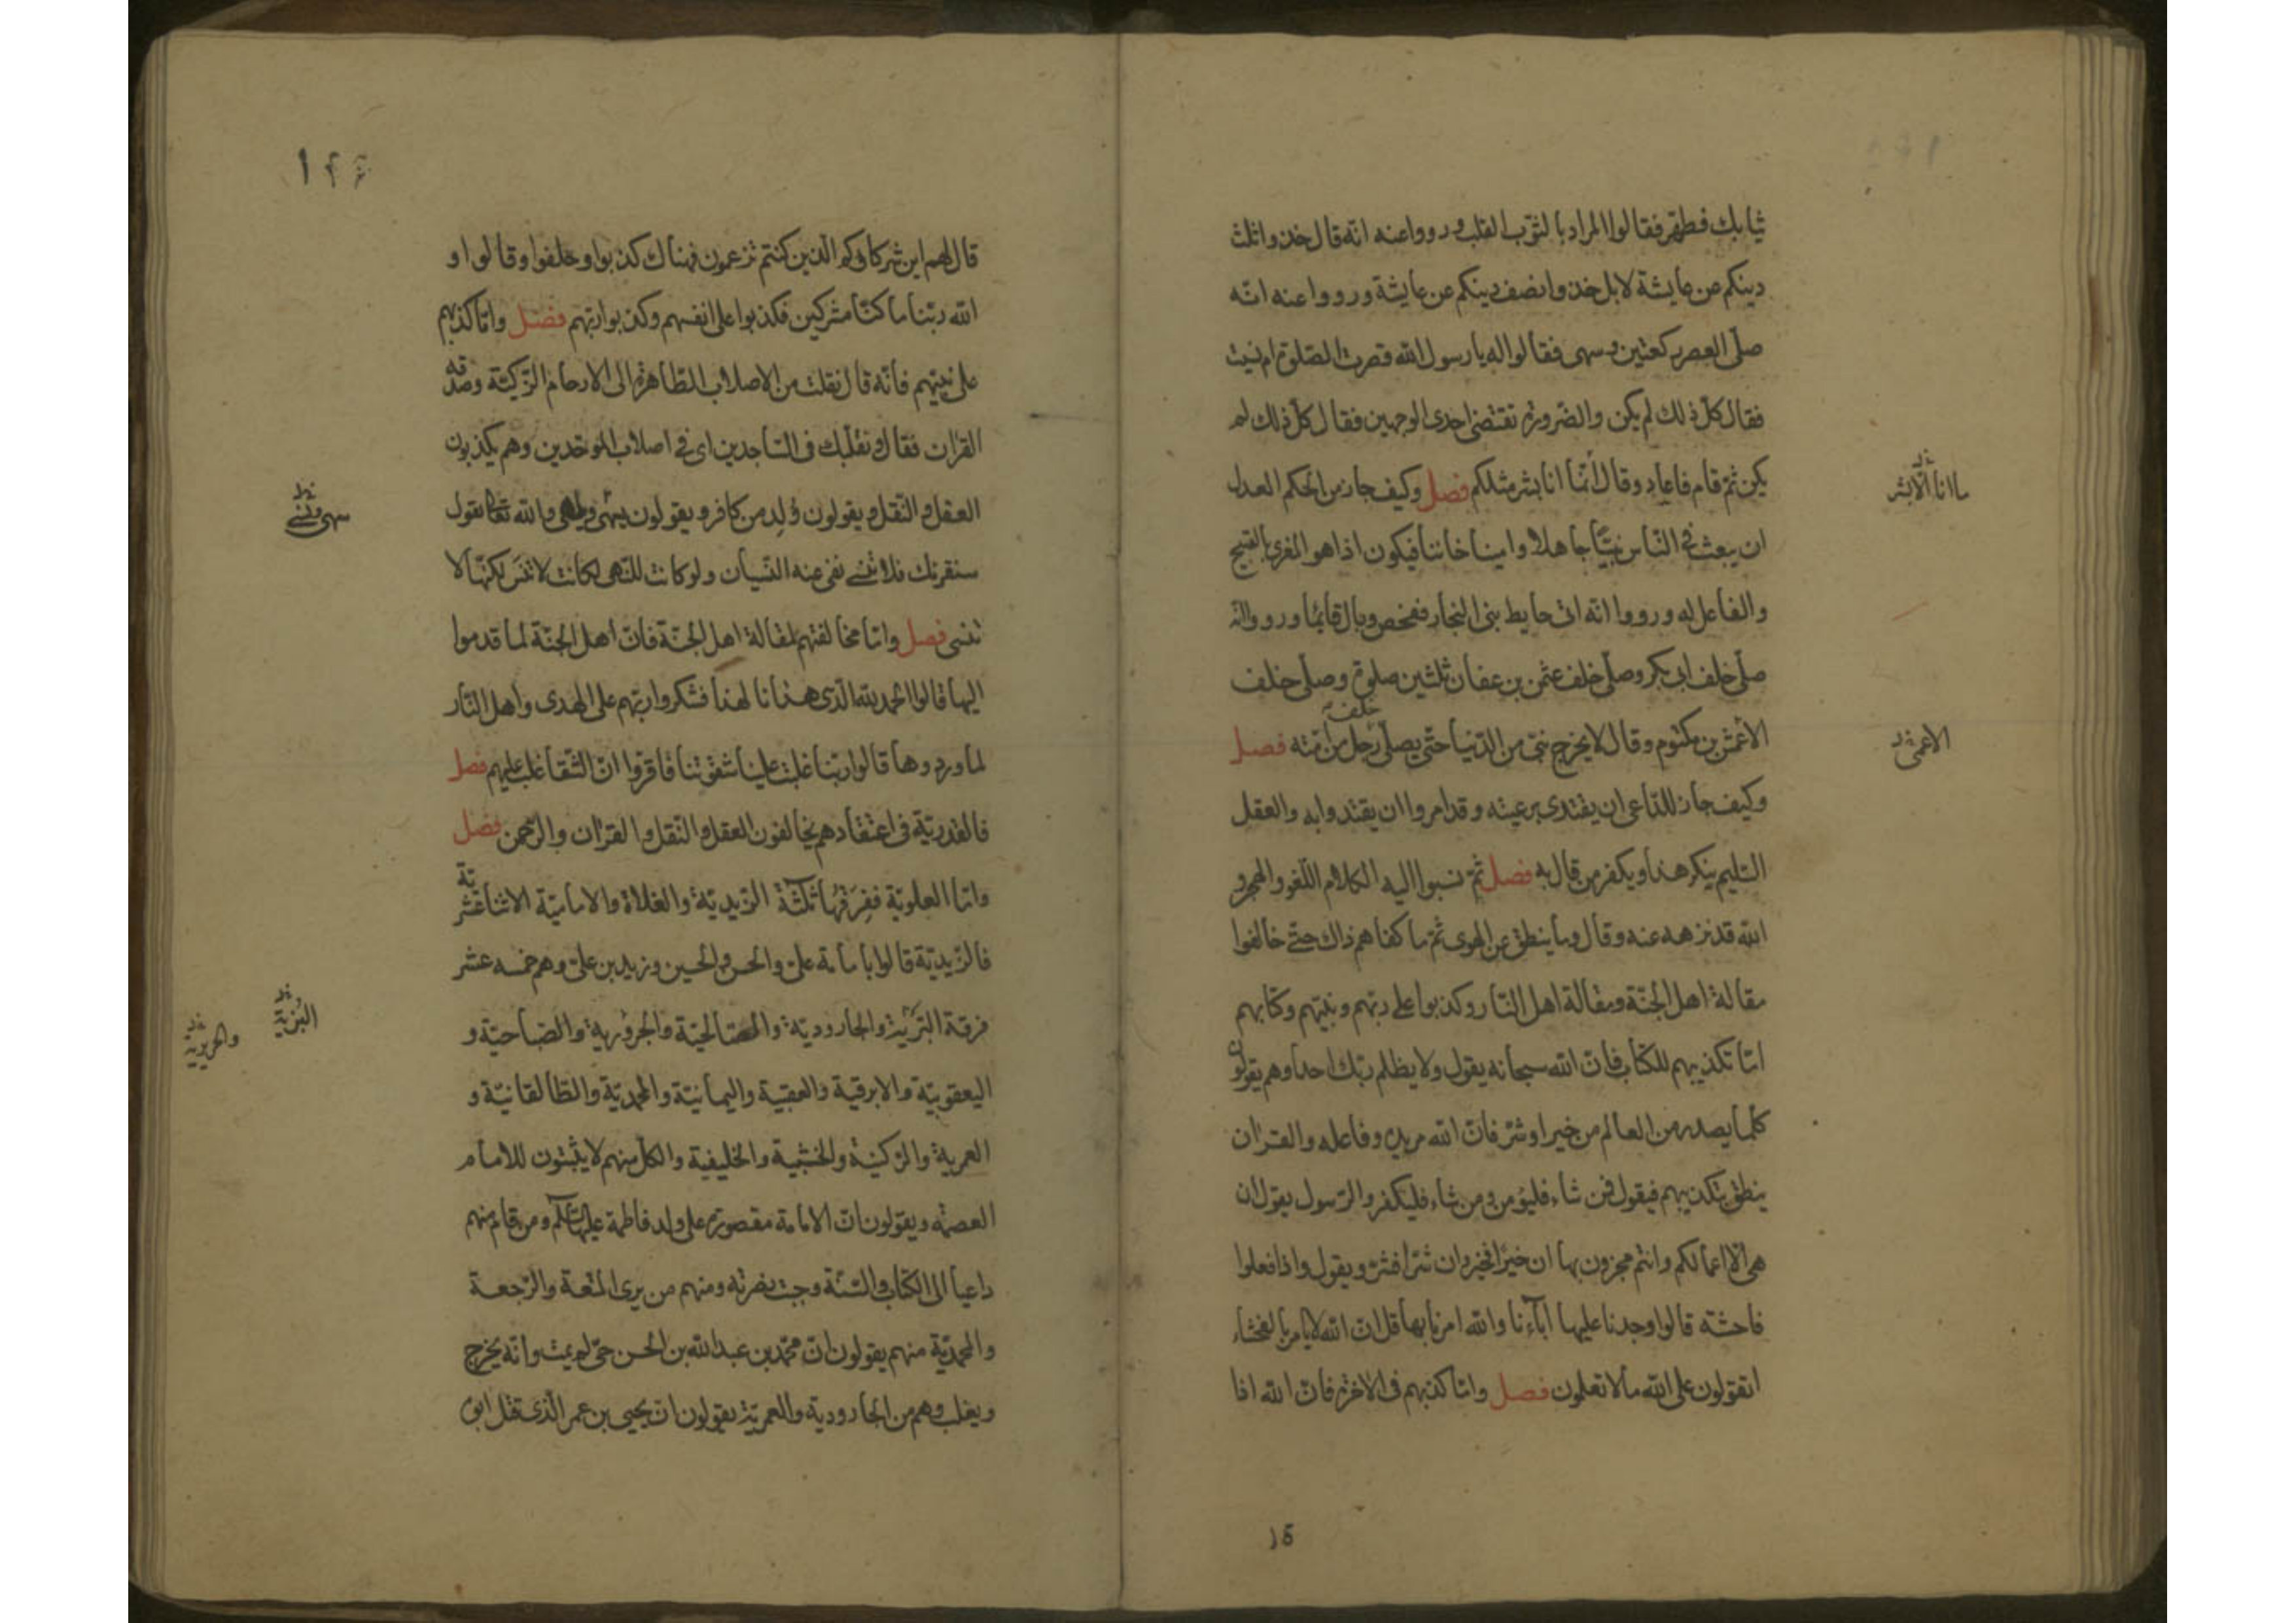 ثيابك فطهر فقالوا المراد بالثوب القلب ورووا عنه انه قال خذوا ثلث
دينكم عن عايشة لا بل خذوا نصف دينكم عن عايشة ورووا عنه انه
صلى العصر ركعتين وسهى فقالوا له يا رسول الله قصرت الصلوة ام نسيت
فقال كل ذلك لم يكن والضرورة تقتضى احدى الوجهين فقال كل ذلك لم
يكن ثم قام فاعاد وقال انما انا بشر مثلكم فصل وكيف جاز من الحكم العدل
ما انا الا بشر
ان يبعث فى الناس نبيا جاهلا وامينا خائنا فيكون اذا هو المغرى بالقبيح
والفاعل له ورووا انه اتى حايط بنى النجار ففحص وبال قائما ورووا انه
صلى خلف ابى بكر وصلى خلف عثمن بن عفان ثلثين صلوة وصلى خلف
الاعمش بن مكتوم وقال لا يخرج نبى من الدنيا حتى يصلى خلفه رجل من امته فصل
الاعمى
وكيف جاز للداعى ان يقتدى برعيته وقد امروا ان يقتدوا به والعقل
السليم ينكر هذا ويكفر من قال به فصل ثم نسبوا اليه الكلام اللغو والهجر و
الله قد نزهه عنه وقال وما ينطق عن الهوى ثم ما كفاهم ذاك حتى خالفوا
مقالة اهل الجنة ومقالة اهل النار وكذبوا على ربهم ونبيهم وكتابهم
اما تكذيبهم للكتاب فان الله سبحانه يقول ولا يظلم ربك احدا وهم يقولون
كلما يصدر من العالم من خير او شر فان الله مريده وفاعله والقران
ينطق بتكذيبهم فيقول فمن شاء فليؤمن ومن شاء فليكفر والرسول يقول ان
هى الا اعمالكم وانتم مجزون بها ان خيرا فخير وان شرا فشر ويقول واذا فعلوا
فاحشة قالوا وجدنا عليها آباءنا والله امرنا بها قل ان الله لا يامر بالفحشاء
اتقولون على الله ما لا تعلمون فصل واما كذبهم فى الاخرة فان الله اذا
15
قال لهم اين شركاؤكم الذين كنتم تزعمون فهناك كذبوا وحلفوا وقالوا و
الله ربنا ما كنا مشركين فكذبوا على انفسهم وكذبوا ربهم فصل واما كذبهم
على نبيهم فانه قال نقلت من الاصلاب الطاهرة الى الارحام الزكية وصدقه
القران فقال وتقلبك فى الساجدين اى فى اصلاب الموحدين وهم يكذبون
العقل والنقل ويقولون ولد من كافر ويقولون والله تعالى يقول
سهى ونسى
سنقرئك فلا تنسى نفى عنه النسيان ولو كانت للنهى لكانت لا تنس لكنها لا
تنسى فصل واما مخالفتهم لمقالة اهل الجنة فان اهل الجنة لما قدموا
اليها قالوا الحمد لله الذى هدانا لهذا فشكروا ربهم على الهدى واهل النار
لما وردوها قالوا ربنا غلبت علينا شقوتنا فاقروا ان الشقا غلب عليهم فصل
فالقدرية فى اعتقادهم يخالفون العقل والنقل والقران والرحمن فصل
واما العلوية ففرقها ثلثة الزيدية والغلاة والامامية الاثنا عشرية
فالزيدية قالوا بامامة على والحسن والحسين وزيد بن على وهم خمسه عشر
فرقة البترية والجارودية والصالحية والجرورية والصباحية و
البزية
والحريرية
اليعقوبية والابرقية والعقبية واليمانية والمحمدية والطالقانية و
العمرية والركنية والخشبية والخليفية والكل منهم لا يثبتون للامام
العصمة ويقولون ان الامامة مقصورة على ولد فاطمة عليها السلام ومن قام منهم
داعيا الى الكتاب والسنة وجبت نصرته ومنهم من يرى المتعة والرجعة
والمحمدية منهم يقولون ان محمد بن عبد الله بن الحسن حى لم يمت وانه يخرج
ويغلب وهم من الجارودية والعمرية يقولون ان يحيى بن عمر الذى قتل ابو